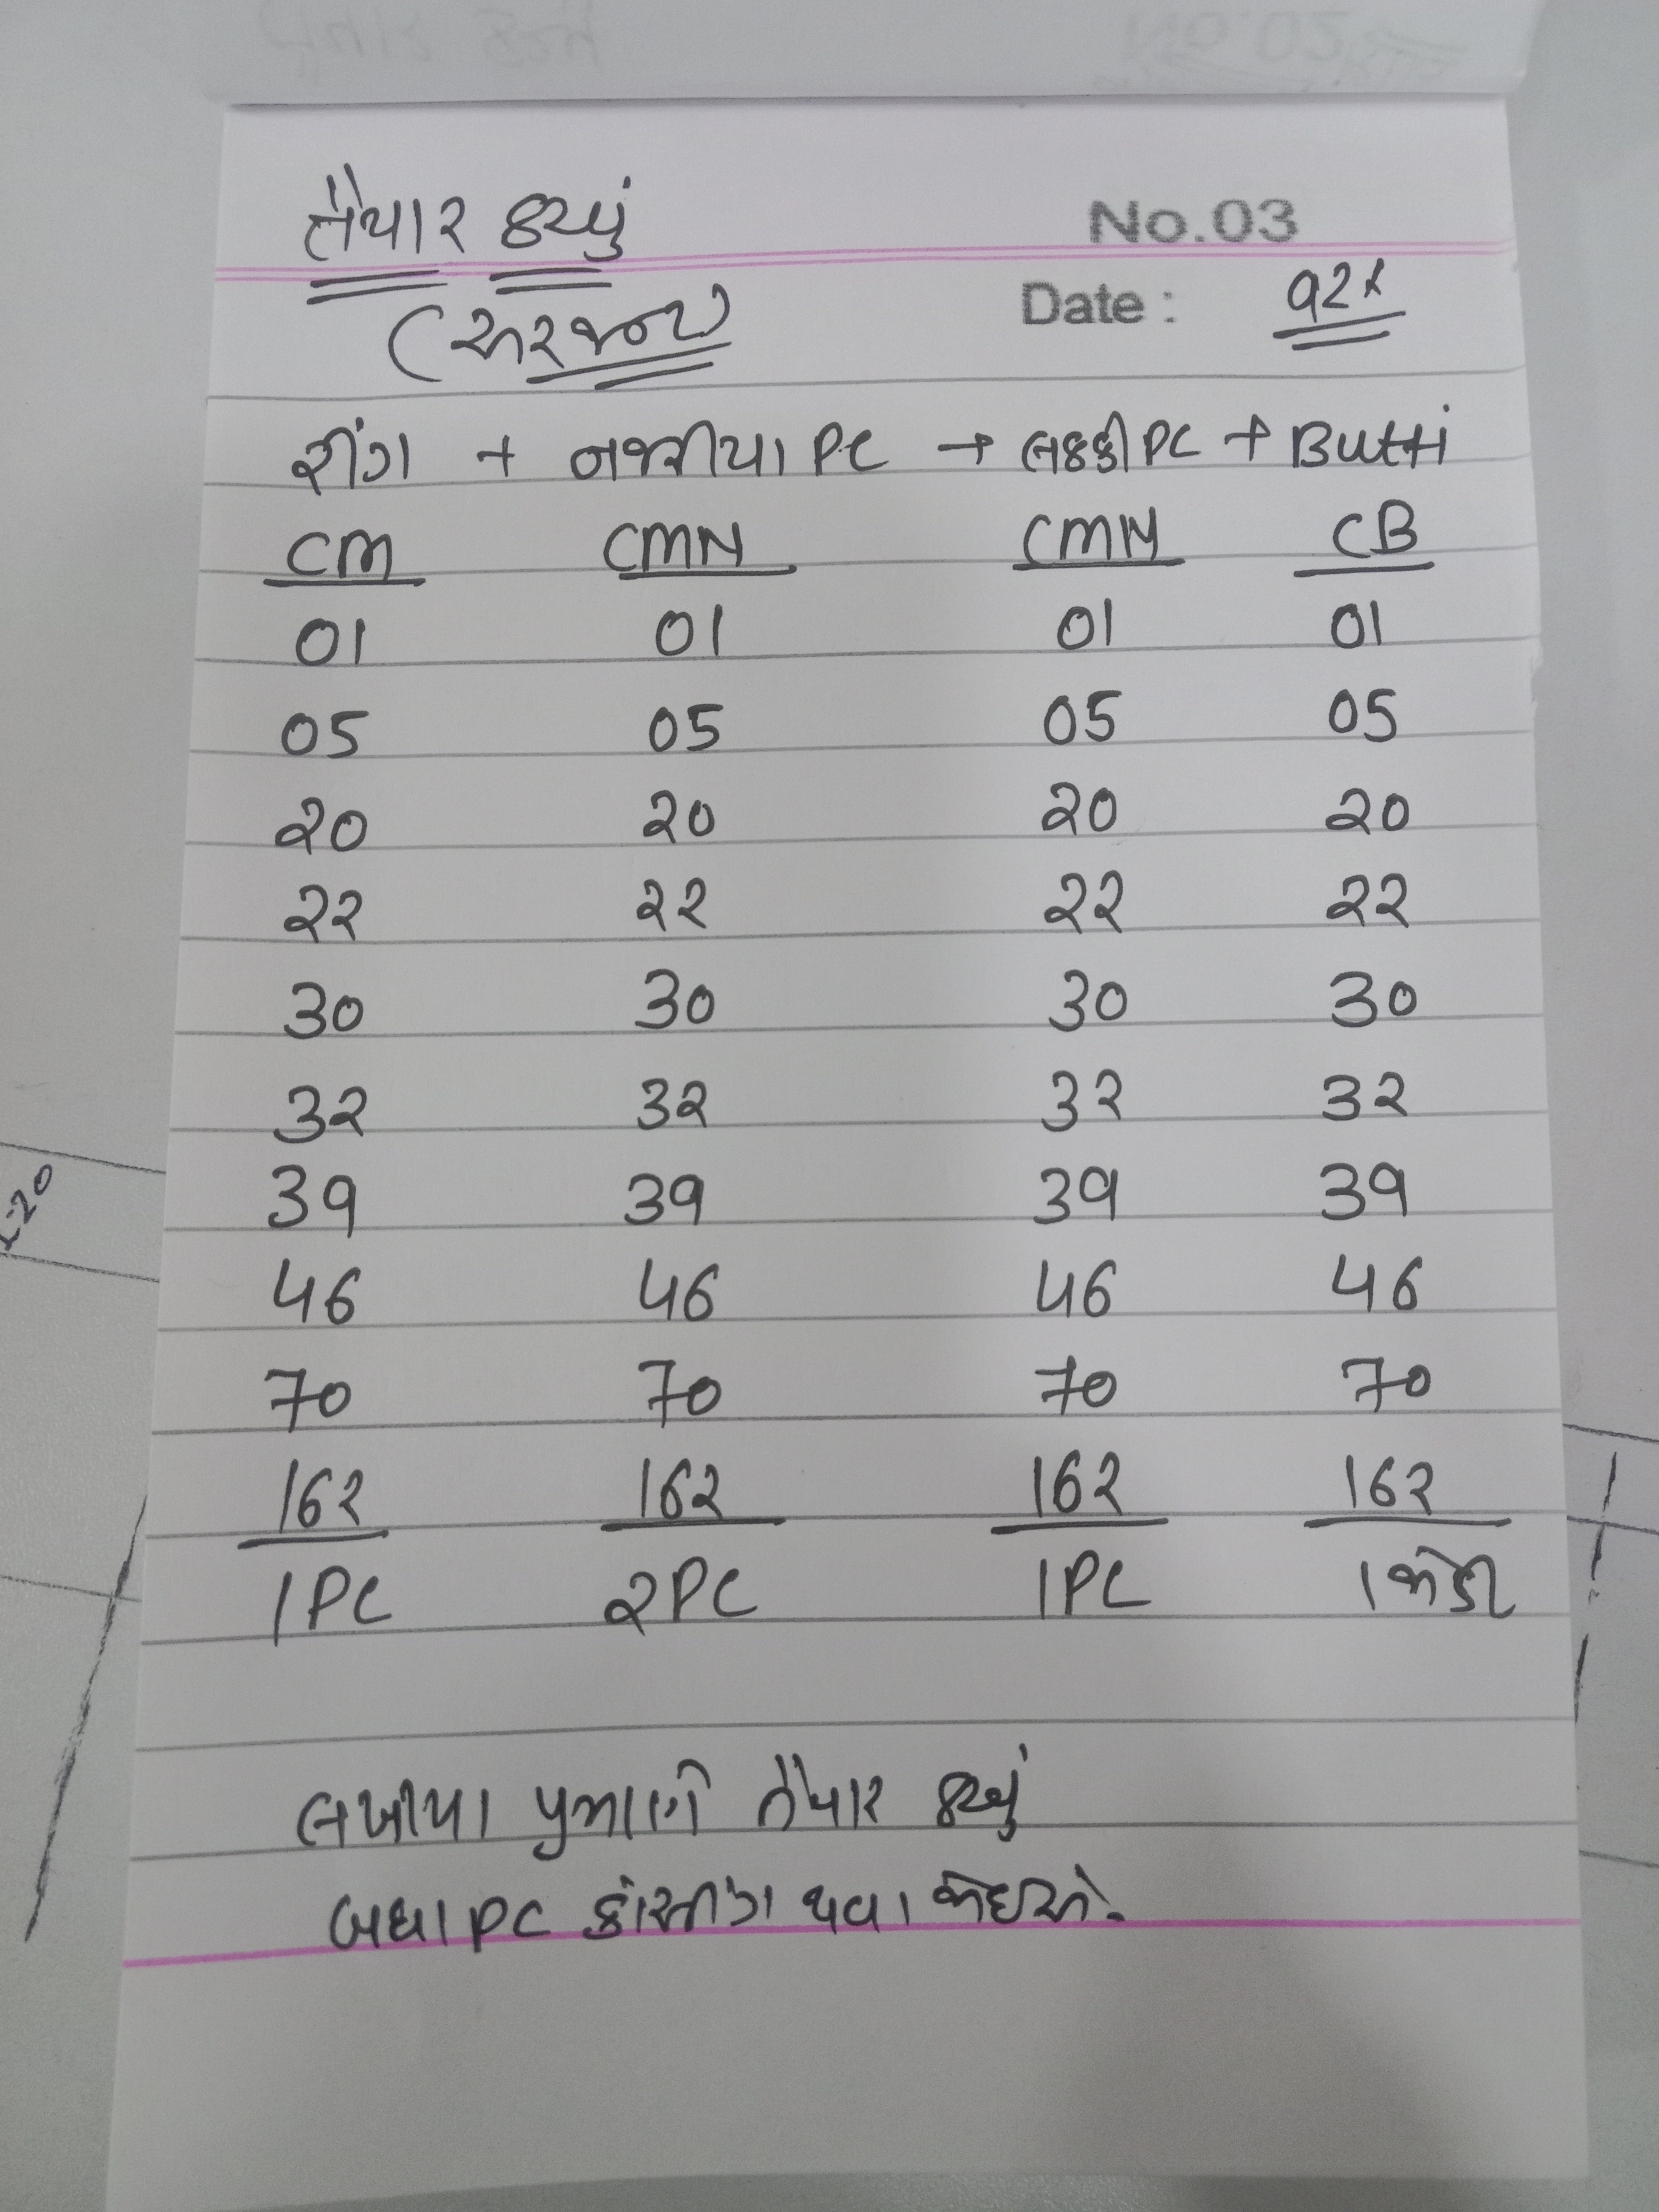 તૈયાર કરવું No.03
(અરજન્ટ) Date :
રીંગ + બાજરીયા PC + લક્કી PC + Butti
CM CMN CMN CB
01 01 01 01
05 05 05 05
20 20 20 20
22 22 22 22
30 30 30 30
32 32 32 32
39 39 39 39
46 46 46 46
70 70 70 70
162 162 162 162
1 PC 2 PC 1 PC 1 જોડી
લખીયા પ્રમાણે તૈયાર કરવું
બધા PC કાસ્ટીંગ થવા જોઇએ.
-20